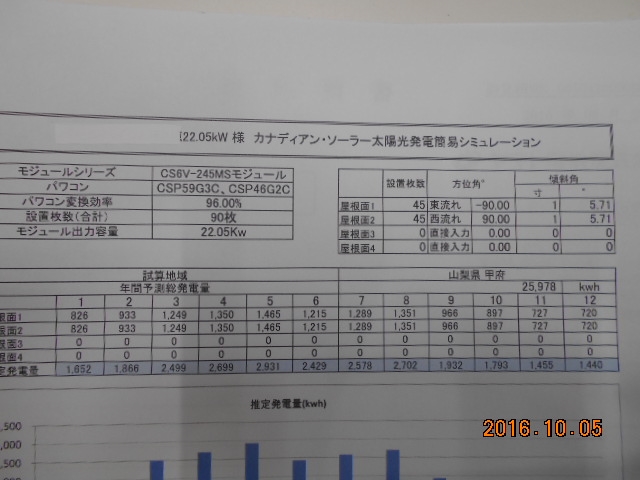 22.05kW 様 カナディアン・ソーラー太陽光発電簡易シミュレーション
モジュールシリーズ CS6V-245MSモジュール
パワコン CSP59G3C、CSP46G2C
パワコン変換効率 96.00%
設置枚数(合計) 90枚
モジュール出力容量 22.05Kw
設置枚数 方位角° 傾斜角
寸 °
屋根面1 45 東流れ -90.00 1 5.71
屋根面2 45 西流れ 90.00 1 5.71
屋根面3 0 直接入力 0.00 0 0
屋根面4 0 直接入力 0.00 0 0
試算地域 山梨県 甲府
年間予測総発電量 25,978 kwh
1 2 3 4 5 6 7 8 9 10 11 12
根面1 826 933 1,249 1,350 1,465 1,215 1,289 1,351 966 897 727 720
根面2 826 933 1,249 1,350 1,465 1,215 1,289 1,351 966 897 727 720
根面3 0 0 0 0 0 0 0 0 0 0 0 0
根面4 0 0 0 0 0 0 0 0 0 0 0 0
定発電量 1,652 1,866 2,499 2,699 2,931 2,429 2,578 2,702 1,932 1,793 1,455 1,440
推定発電量(kwh)
,500
,000
,500
2016.10.05